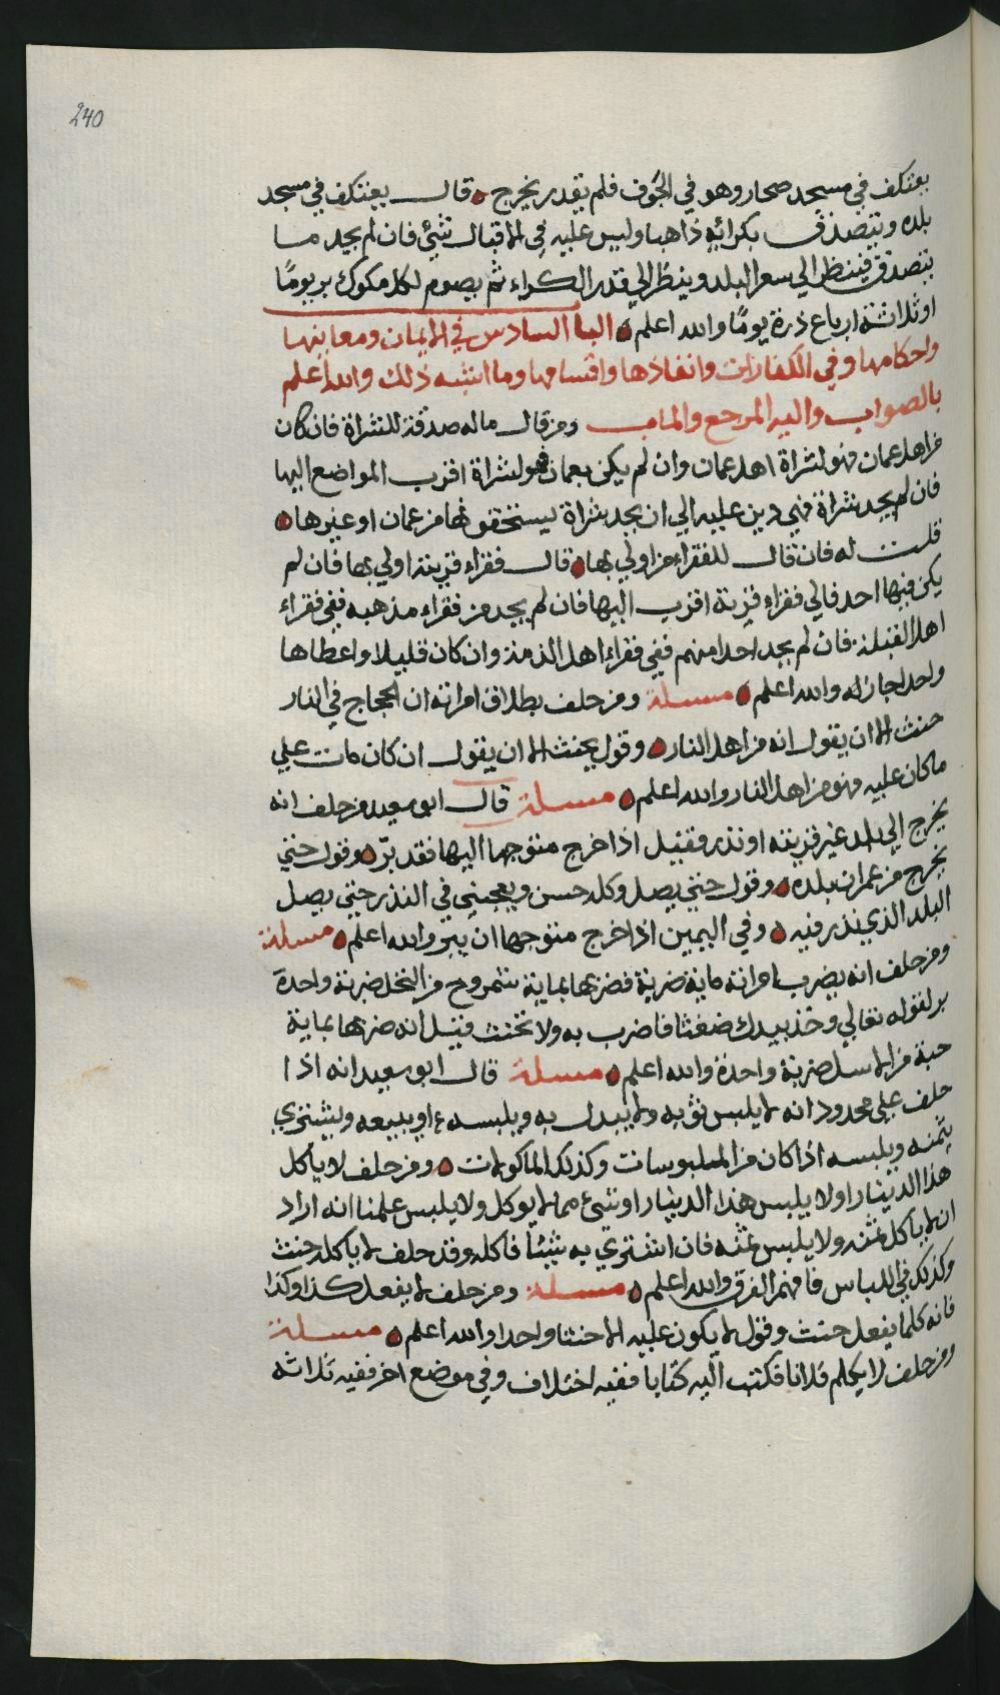 240
يعتكف في مسجد صحار وهو في الجوف فلم يقدر يخرج ٥ قال يعتكف في مسجد
بلده ويتصدق بكرائه ذاهبا وليس عليه في الاقبال شئ فان لم يجد ما
يتصدق فينظر الي سعر البلد وينظر الي قدر الكراء ثم يصوم لكل مكوك بر يومًا
او ثلاثة ارباع ذرة يومًا والله اعلم ٥ الباب السادس في الايمان ومعانيها
واحكامها وفي الكفارات وانفاذها واقسامها وما اشبه ذلك والله اعلم
بالصواب واليه المرجع والماب ومن قال ماله صدقة للشراة فان كان
من اهل عمان فهو لشراة اهل عمان وان لم يكن بعمان فهو لشراة اقرب المواضع اليها
فان لم يجد شراة فهي دين عليه الي ان يجد شراة يستحقونها من عمان او غيرها ٥
قلت له فان قال للفقراء من اولي بها ٥ قال فقراء قريته اولي بها فان لم
يكن فيها احد فالي فقراء قرية اقرب اليها فان لم يجد من فقراء مذهبه ففي فقراء
اهل القبلة فان لم يجد احدا منهم ففي فقراء اهل الذمة وان كان قليلا واعطاها
واحدا جاز له والله اعلم ٥ مسلة ومن حلف بطلاق امراته ان الحجاج في النار
حنث الا ان يقول انه من اهل النار ٥ وقول يحنث الا ان يقول ان كان مات علي
ما كان عليه فهو من اهل النار والله اعلم ٥ مسلة قال ابو سعيد من حلف انه
يخرج الي بلد غير قريته او نذر فقيل اذا خرج متوجها اليها فقد برّ ٥ وقول حتي
يخرج من عمران بلده ٥ وقول حتي يصل وكله حسن ويعجبني في النذر حتي يصل
البلد الذي نذر فيه ٥ وفي اليمين اذا خرج متوجها ان يبر والله اعلم ٥ مسلة
ومن حلف انه يضرب امراته ماية ضربة فضربها بماية شمروخ من النخل ضربة واحدة
بر لقوله تعالي وخذ بيدك ضغثا فاضرب به ولا تحنث قيل انه ضربها بماية
حبة من الاسل ضربة واحدة والله اعلم ٥ مسلة قال ابو سعيد انه اذا
حلف علي محدود انه لا يلبس ثوبه ولا يبدل به ويلبسه او يبيعه ويشتري
بثمنه ويلبسه اذا كان من الملبوسات وكذلك الماكولات ٥ ومن حلف لا ياكل
هذا الدينار او لا يلبس هذا الدينار او شئ مما لا يوكل ولا يلبس علمنا انه اراد
ان لا ياكل ثمنه ولا يلبس ثمنه فان اشتري به شيئا فاكله وقد حلف لا ياكله حنث
وكذلك في اللباس فافهم الفرق والله اعلم ٥ مسلة ومن حلف لا يفعل كذا وكذا
فانه كلما يفعل حنث وقول لا يكون عليه الا حنثا واحدا والله اعلم ٥ مسلة
ومن حلف لا يكلم فلانا فكتب اليه كتابا ففيه اختلاف وفي موضع اخر ففيه ثلاثه